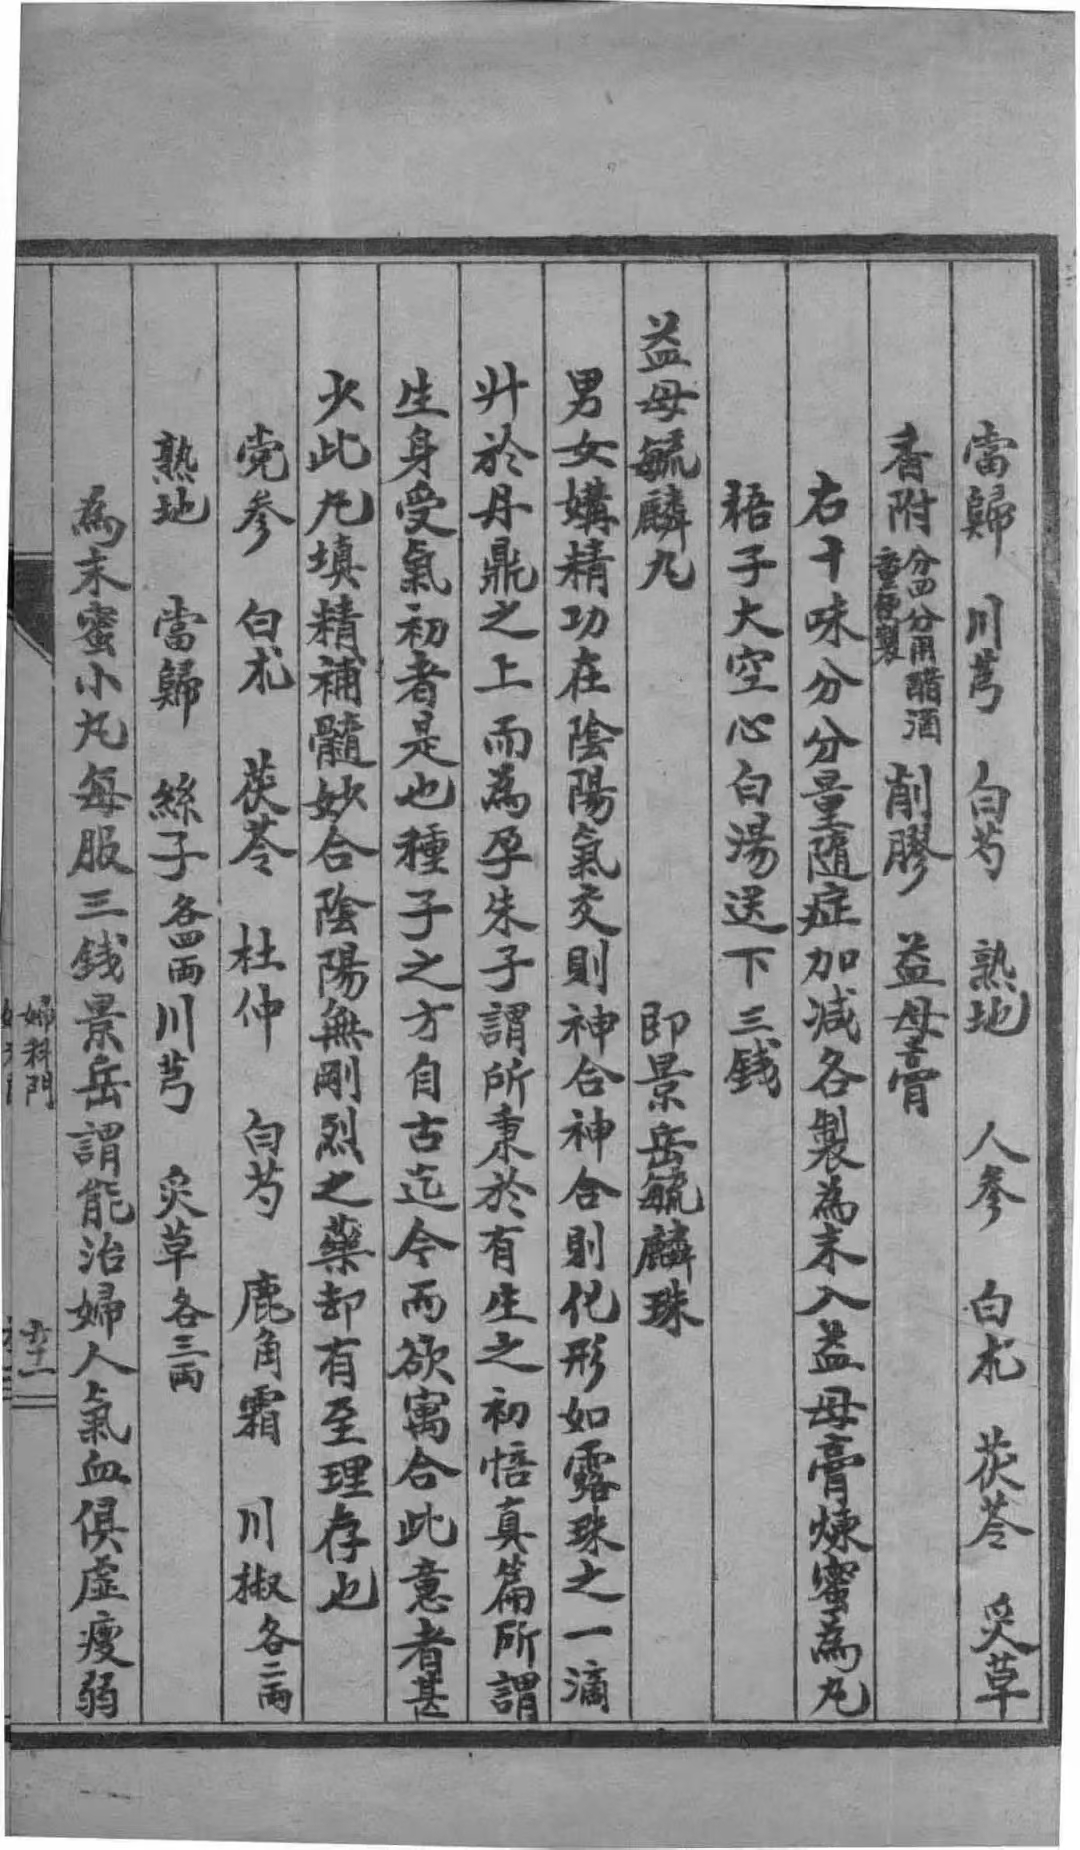 當歸 川芎 白芍 熟地 人參 白朮 茯苓 炙草
香附 分四分用醋酒童便製 削膠 益母膏
右十味分分量隨症加減各製為末入益母膏煉蜜為丸
梧子大空心白湯送下三錢
益母毓麟丸 即景岳毓麟珠
男女媾精功在陰陽氣交則神合神合則化形如露珠之一滴
升於丹鼎之上而為孕朱子謂所秉於有生之初悟真篇所謂
生身受氣初者是也種子之方自古迄今而欲寓合此意者甚
少此丸填精補髓妙合陰陽無剛烈之藥却有至理存也
党参 白朮 茯苓 杜仲 白芍 鹿角霜 川椒各二両
熟地 當歸 絲子各四両 川芎 炙草各三両
為末蜜小丸每服三錢景岳謂能治婦人氣血俱虛瘦弱
婦科門